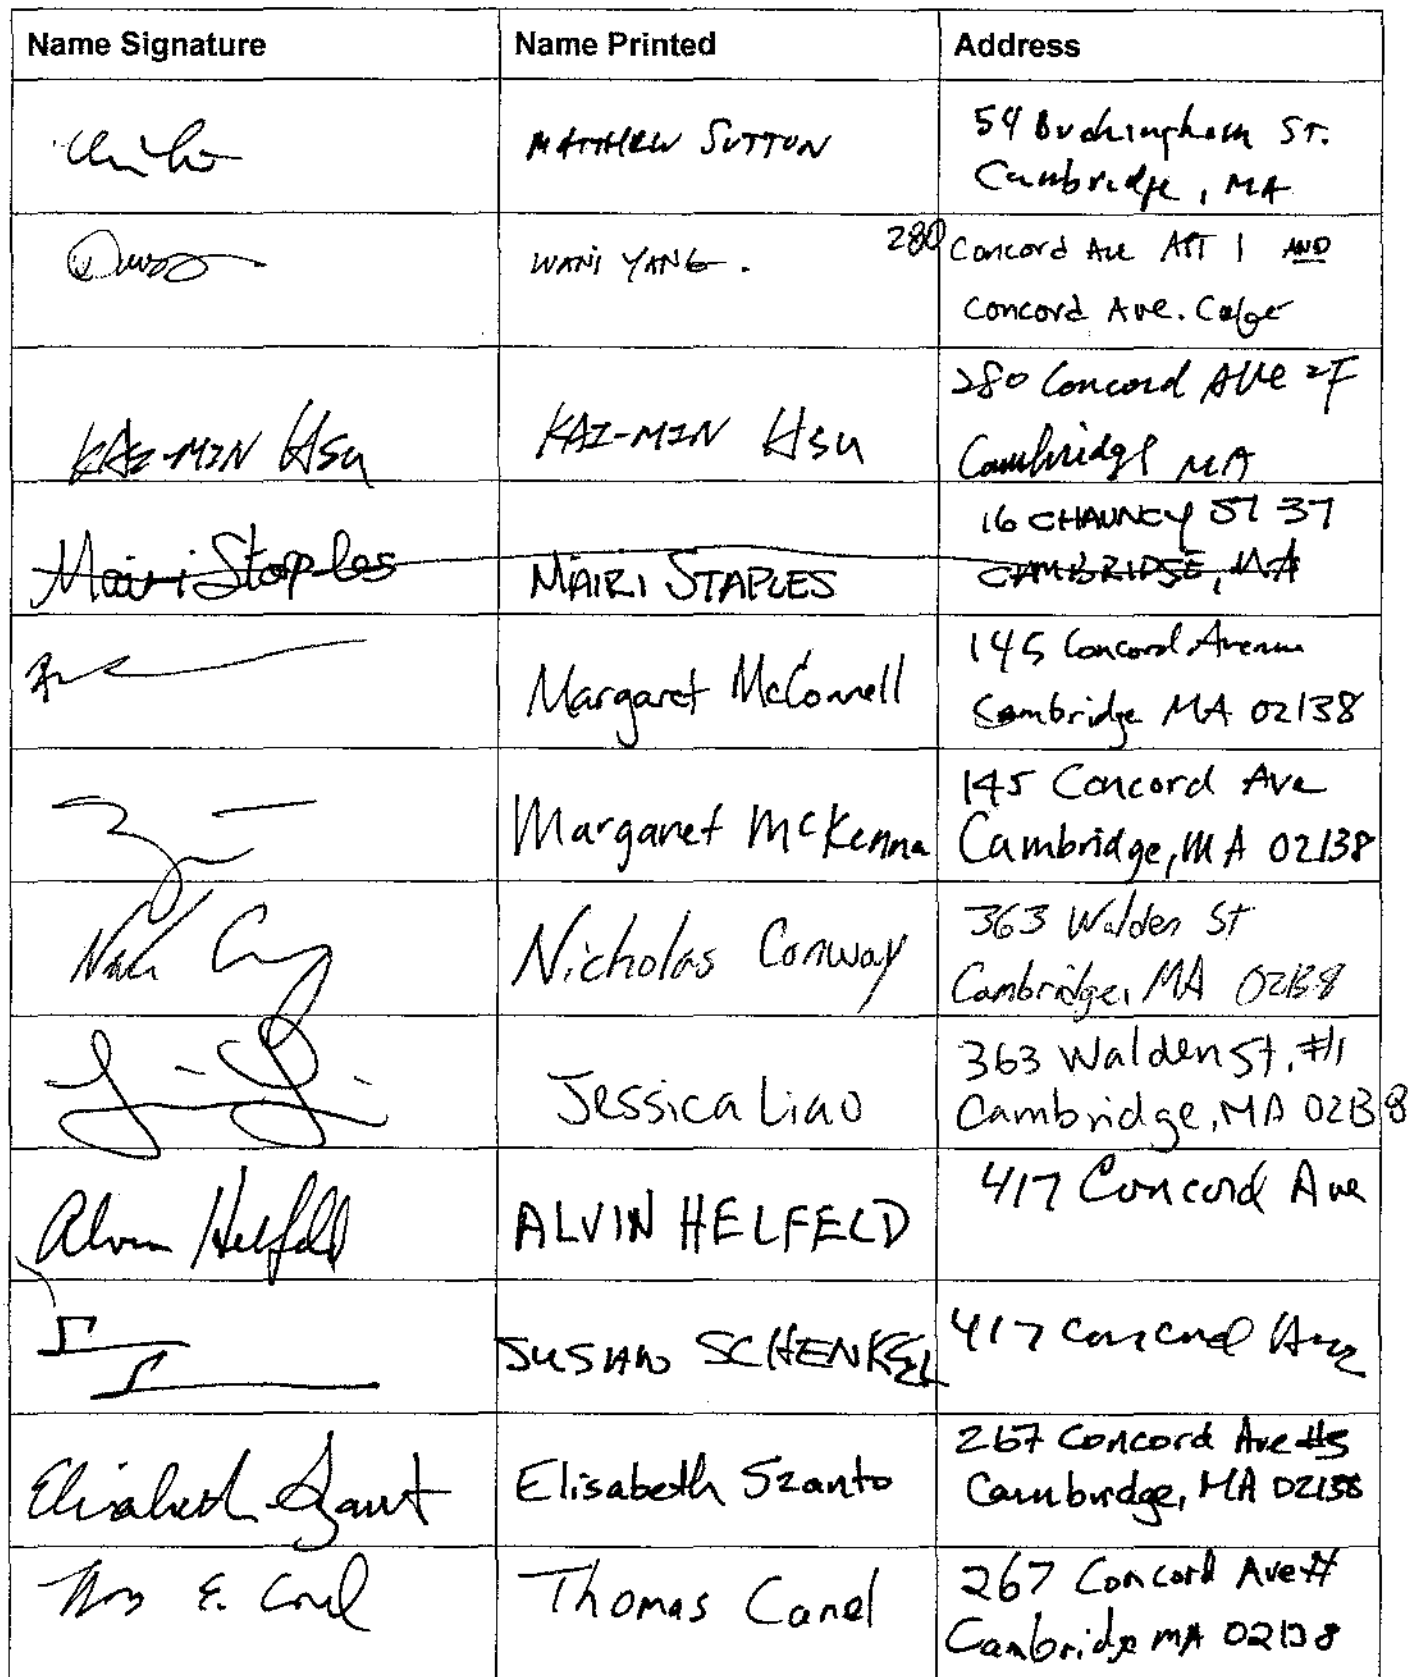 Name Signature Name Printed Address
MATTHEW SUTTON 54 Buckingham ST.
Cambridge, MA
WANI YANG. 280 Concord Ave APT 1 AND
Concord Ave. Cafe
KAI-MIN Hsu KAI-MIN Hsu 280 Concord AVe 2F
Cambridge MA
Mairi Staples MAIRI STAPLES 16 CHAUNCY ST 37
CAMBRIDGE, MA
Margaret McConnell 145 Concord Avenue
Cambridge MA 02138
Margaret McKenna 145 Concord Ave
Cambridge, MA 02138
Nicholas Conway 363 Walden St
Cambridge, MA 02138
Jessica Liao 363 Walden St. #1
Cambridge, MA 02138
Alvin Helfeld ALVIN HELFELD 417 Concord Ave
SUSAN SCHENKEL 417 Concord Ave
Elisabeth Szanto Elisabeth Szanto 267 Concord Ave #5
Cambridge, MA 02138
Thomas 267 Concord Ave #
Cambridge MA 02138